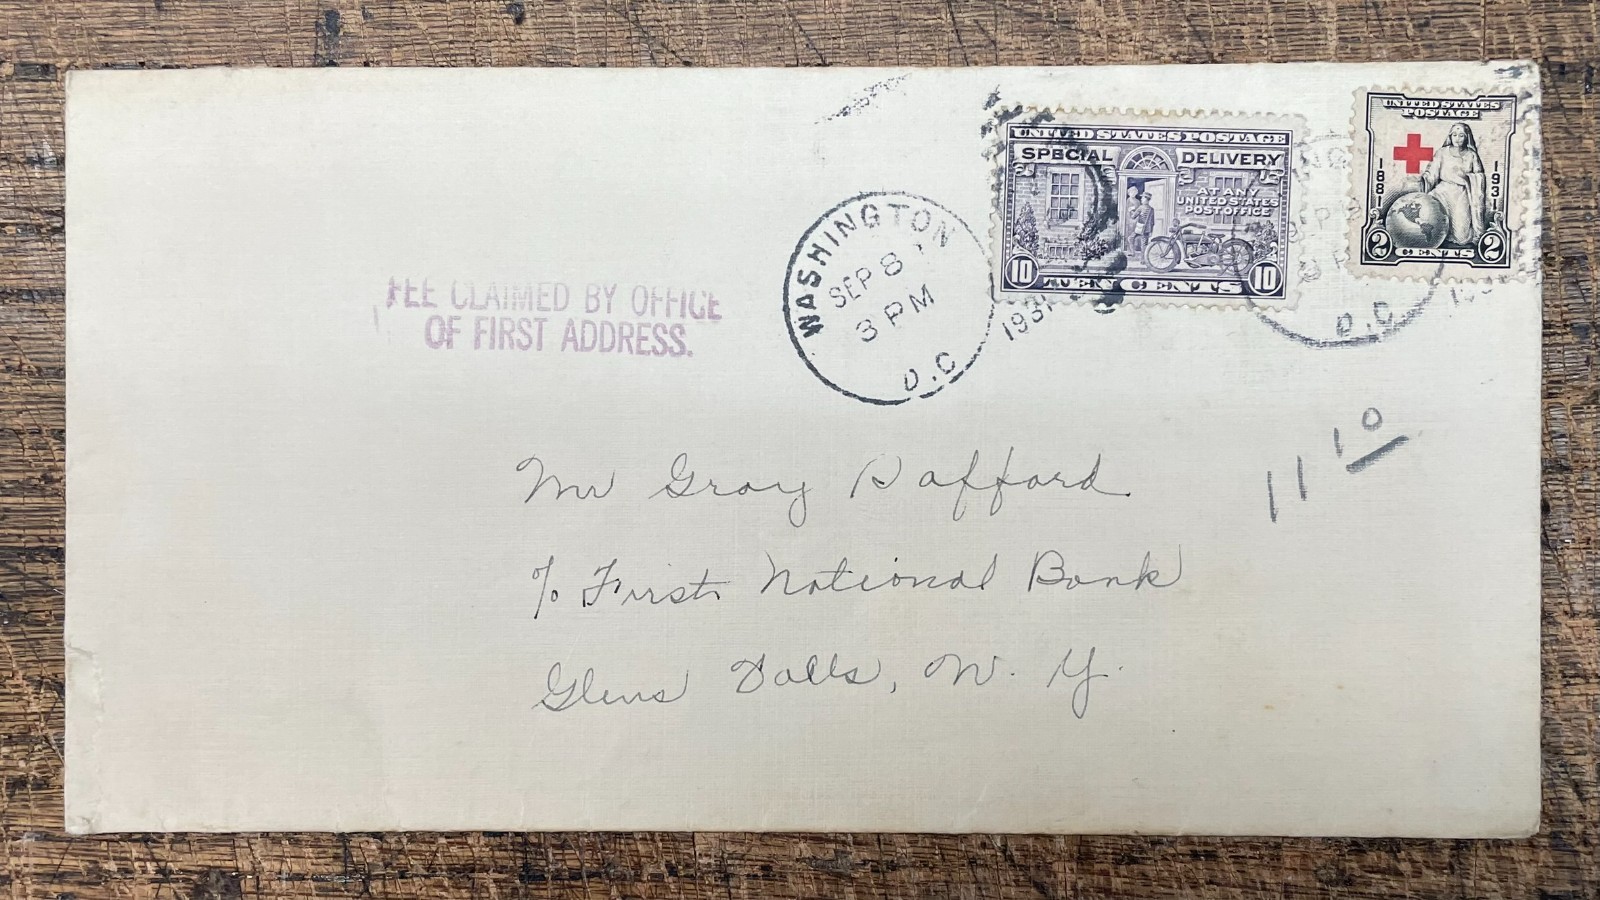 UNITED STATES POSTAGE
SPECIAL DELIVERY
AT ANY
UNITED STATES
POST OFFICE
10 TEN CENTS 10
UNITED STATES
POSTAGE
1881 1931
2 CENTS 2
WASHINGTON
SEP 8
3 PM
D.C
1931
SEP 8
D.C
FEE CLAIMED BY OFFICE
OF FIRST ADDRESS.
11 10
Mr Gray
c/o First National Bank
Glens Falls, N. Y.